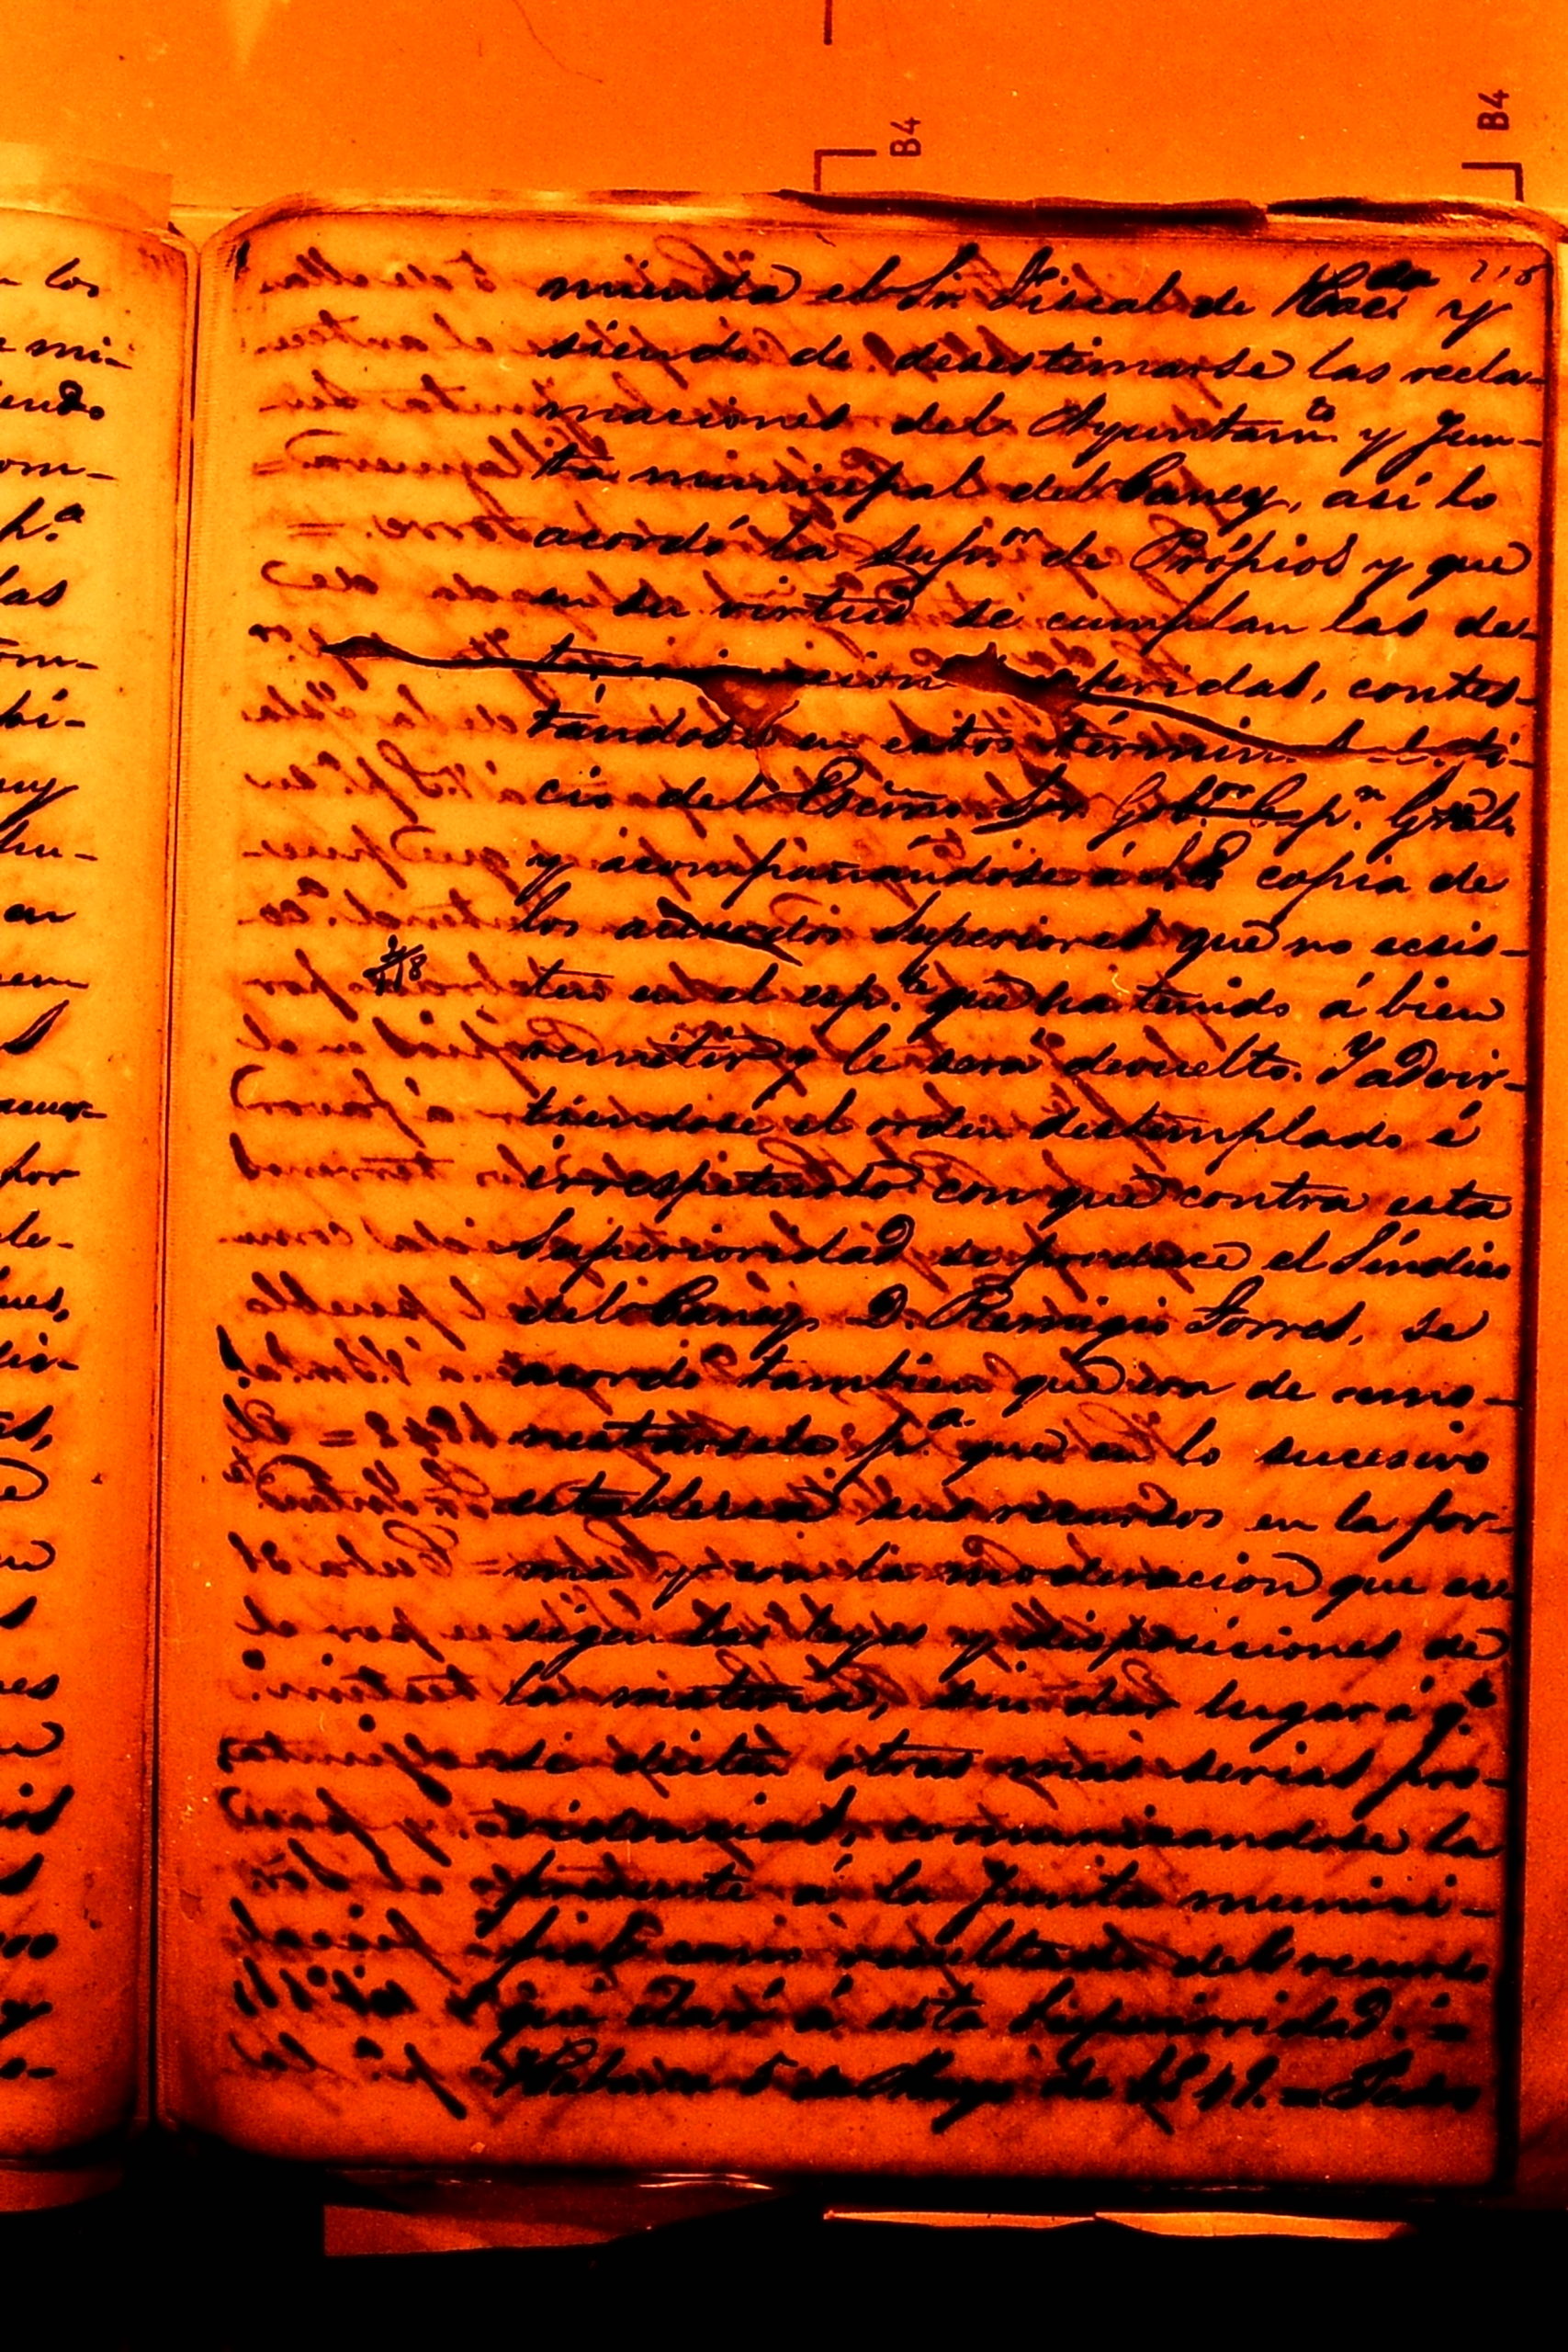 B4
B4
218
mienda el Sr. Fiscal de Hac.da y
siendo de desestimarse las recla-
maciones del Ayuntam.to y Jun-
ta municipal del Caney, así lo
acordó la Supr.m de Própios y que
en su virtud se cumplan las de-
contes-
tándose en estos términ
cio del Escmo. Sr. Gob.or Cap.n Gral
y acompañandose á S.E. copia de
los acuerdos Superiores que no ecsis-
ten en el esp.te que ha tenido á bien
remitir y le será devuelto. Y advir-
tiendose el orden destemplado é
irrespetuoso con que contra esta
Superioridad se produce el Síndico
del Caney D. Remigio Torres, se
acordó tambien que era de amo-
nestarsele p.a que en lo sucesivo
establezca sus recursos en la for-
ma y con la moderacion que ec-
sigen las leyes y disposiciones de
la materia, sin dar lugar á q.e
se dicten otras más serias pro-
videncias, comunicandose la
presente á la Junta munici-
pal como resultado del recurso
que elevó á esta Superioridad. =
Habana 5 de Mayo de
los
mi-
iendo
om-
p.a
las
bi-
en
por